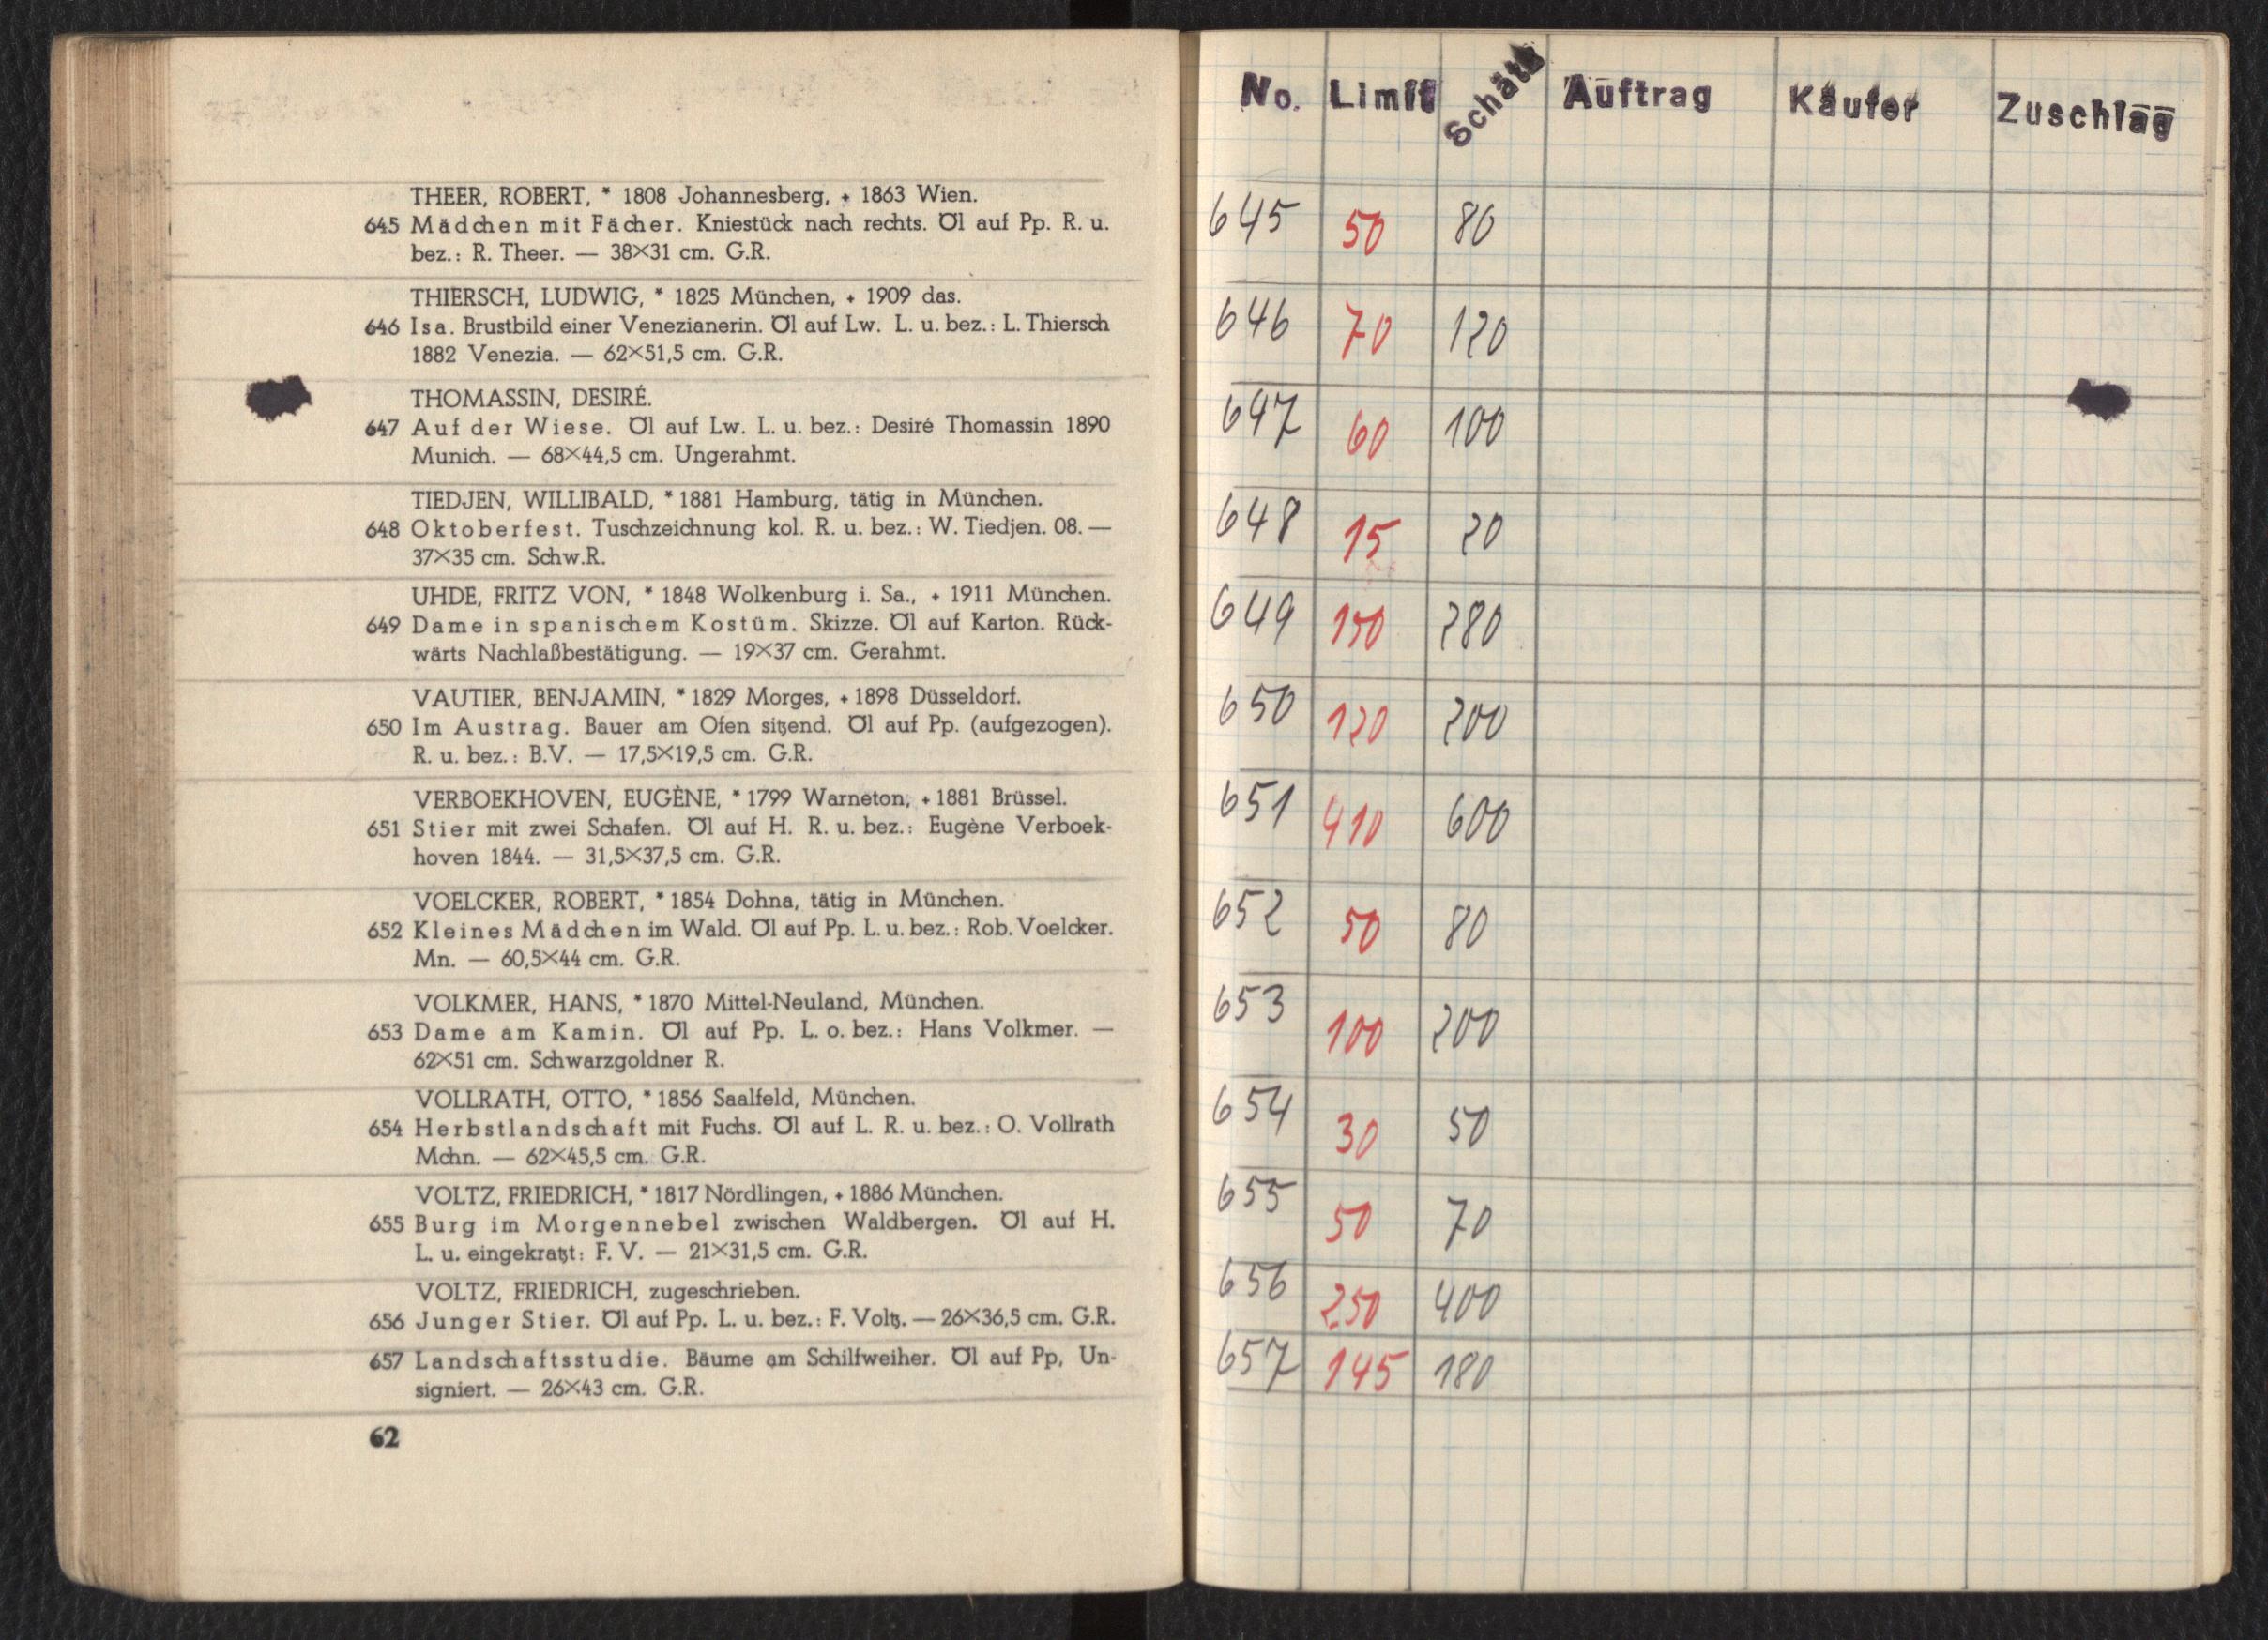 THEER, ROBERT, * 1808 Johannesberg, + 1863 Wien.
645 Mädchen mit Fächer. Kniestück nach rechts. Öl auf Pp. R. u.
bez.: R. Theer. — 38×31 cm. G.R.
THIERSCH, LUDWIG, * 1825 München, + 1909 das.
646 Isa. Brustbild einer Venezianerin. Öl auf Lw. L. u. bez.: L. Thiersch
1882 Venezia. — 62×51,5 cm. G.R.
THOMASSIN, DESIRÉ.
647 Auf der Wiese. Öl auf Lw. L. u. bez.: Desiré Thomassin 1890
Munich. — 68×44,5 cm. Ungerahmt.
TIEDJEN, WILLIBALD, * 1881 Hamburg, tätig in München.
648 Oktoberfest. Tuschzeichnung kol. R. u. bez.: W. Tiedjen. 08. —
37×35 cm. Schw.R.
UHDE, FRITZ VON, * 1848 Wolkenburg i. Sa., + 1911 München.
649 Dame in spanischem Kostüm. Skizze. Öl auf Karton. Rück-
wärts Nachlaßbestätigung. — 19×37 cm. Gerahmt.
VAUTIER, BENJAMIN, * 1829 Morges, + 1898 Düsseldorf.
650 Im Austrag. Bauer am Ofen sitzend. Öl auf Pp. (aufgezogen).
R. u. bez.: B.V. — 17,5×19,5 cm. G.R.
VERBOEKHOVEN, EUGÈNE, * 1799 Warneton, + 1881 Brüssel.
651 Stier mit zwei Schafen. Öl auf H. R. u. bez.: Eugène Verboek-
hoven 1844. — 31,5×37,5 cm. G.R.
VOELCKER, ROBERT, * 1854 Dohna, tätig in München.
652 Kleines Mädchen im Wald. Öl auf Pp. L. u. bez.: Rob. Voelcker.
Mn. — 60,5×44 cm. G.R.
VOLKMER, HANS, * 1870 Mittel-Neuland, München.
653 Dame am Kamin. Öl auf Pp. L. o. bez.: Hans Volkmer. —
62×51 cm. Schwarzgoldner R.
VOLLRATH, OTTO, * 1856 Saalfeld, München.
654 Herbstlandschaft mit Fuchs. Öl auf L. R. u. bez.: O. Vollrath
Mchn. — 62×45,5 cm. G.R.
VOLTZ, FRIEDRICH, * 1817 Nördlingen, + 1886 München.
655 Burg im Morgennebel zwischen Waldbergen. Öl auf H.
L. u. eingekratzt: F. V. — 21×31,5 cm. G.R.
VOLTZ, FRIEDRICH, zugeschrieben.
656 Junger Stier. Öl auf Pp. L. u. bez.: F. Voltz. — 26×36,5 cm. G.R.
657 Landschaftsstudie. Bäume am Schilfweiher. Öl auf Pp, Un-
signiert. — 26×43 cm. G.R.
62
No. Limit Schätz Auftrag Käufer Zuschlag
645 50 80
646 70 120
647 60 100
648 15 20
649 150 280
650 120 200
651 410 600
652 50 80
653 100 200
654 30 50
655 50 70
656 250 400
657 145 180